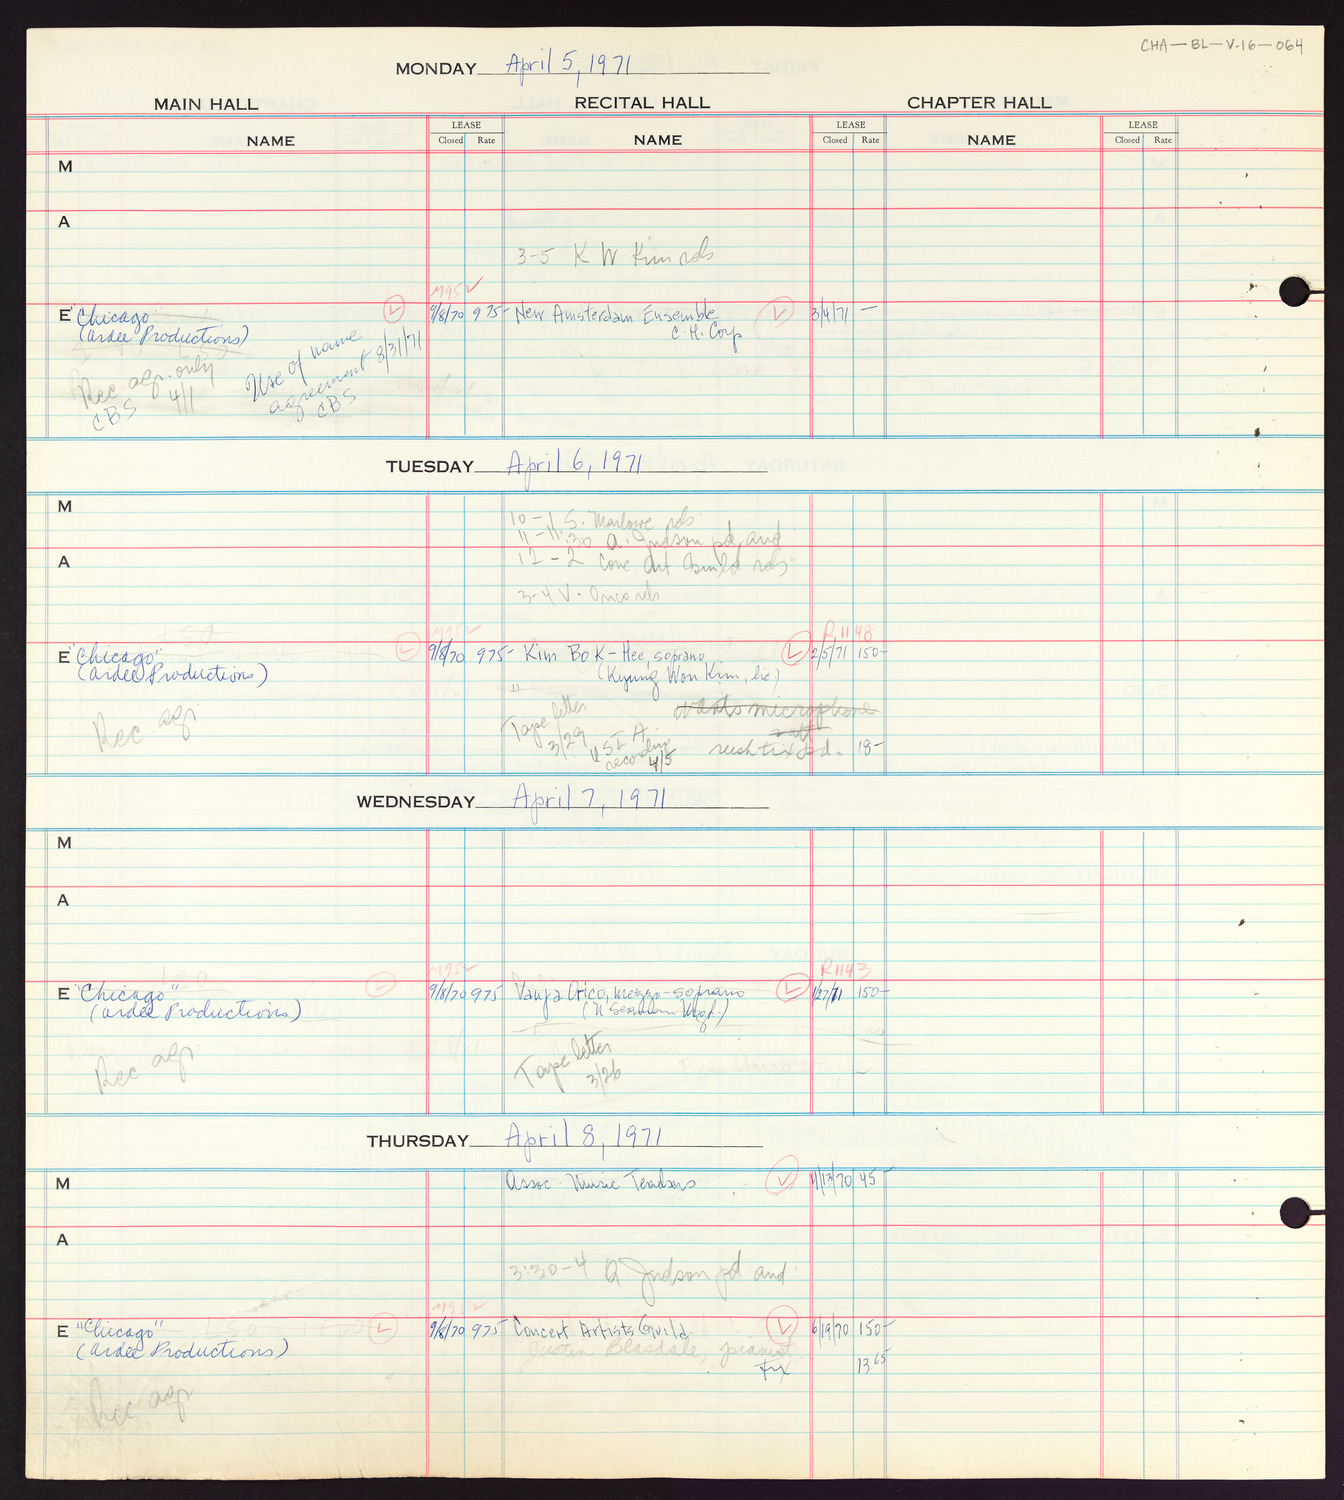 CHA-BL-V-16-064
MONDAY April 5, 1971
MAIN HALL RECITAL HALL CHAPTER HALL
NAME LEASE Closed Rate NAME LEASE Closed Rate NAME LEASE Closed Rate
M
A
3-5 K W Kim rds
M952
E "Chicago" 9/8/70 975- New Amsterdam Ensemble 3/4/71 -
(Ardee Productions) C. H. Corp
Rec agr. only 4/1
CBS
Use of name
agreement 8/31/71
CBS
TUESDAY April 6, 1971
M
10-1 S. Marlowe rds.
11-11:30 A. Judson pd. aud
A
12-2 Conc Art Guild rds.
3-4 V. Orico rds
M952 R1148
E "Chicago" 9/8/70 975- Kim Bok-Hee, soprano 2/5/71 150-
(Ardee Productions) (Kyung Won Kim, lic)
Rec agr.
Tape letter
3/29
USIA
recording
4/5
wants microphone
rush tix pd. 18-
WEDNESDAY April 7, 1971
M
A
M952 R1143
E "Chicago" 9/8/70 975 Vanja Orico, mezzo-soprano 1/27/71 150-
(Ardee Productions)
Rec. agr.
Tape letter
3/26
THURSDAY April 8, 1971
M Assoc. Music Teachers 11/13/70 45-
A
3:30-4 A. Judson pd aud
M952
E "Chicago" 9/8/70 975- Concert Artists Guild 6/19/70 150-
(Ardee Productions) Justin Blasdale, pianist
tix 13.65
Rec agr